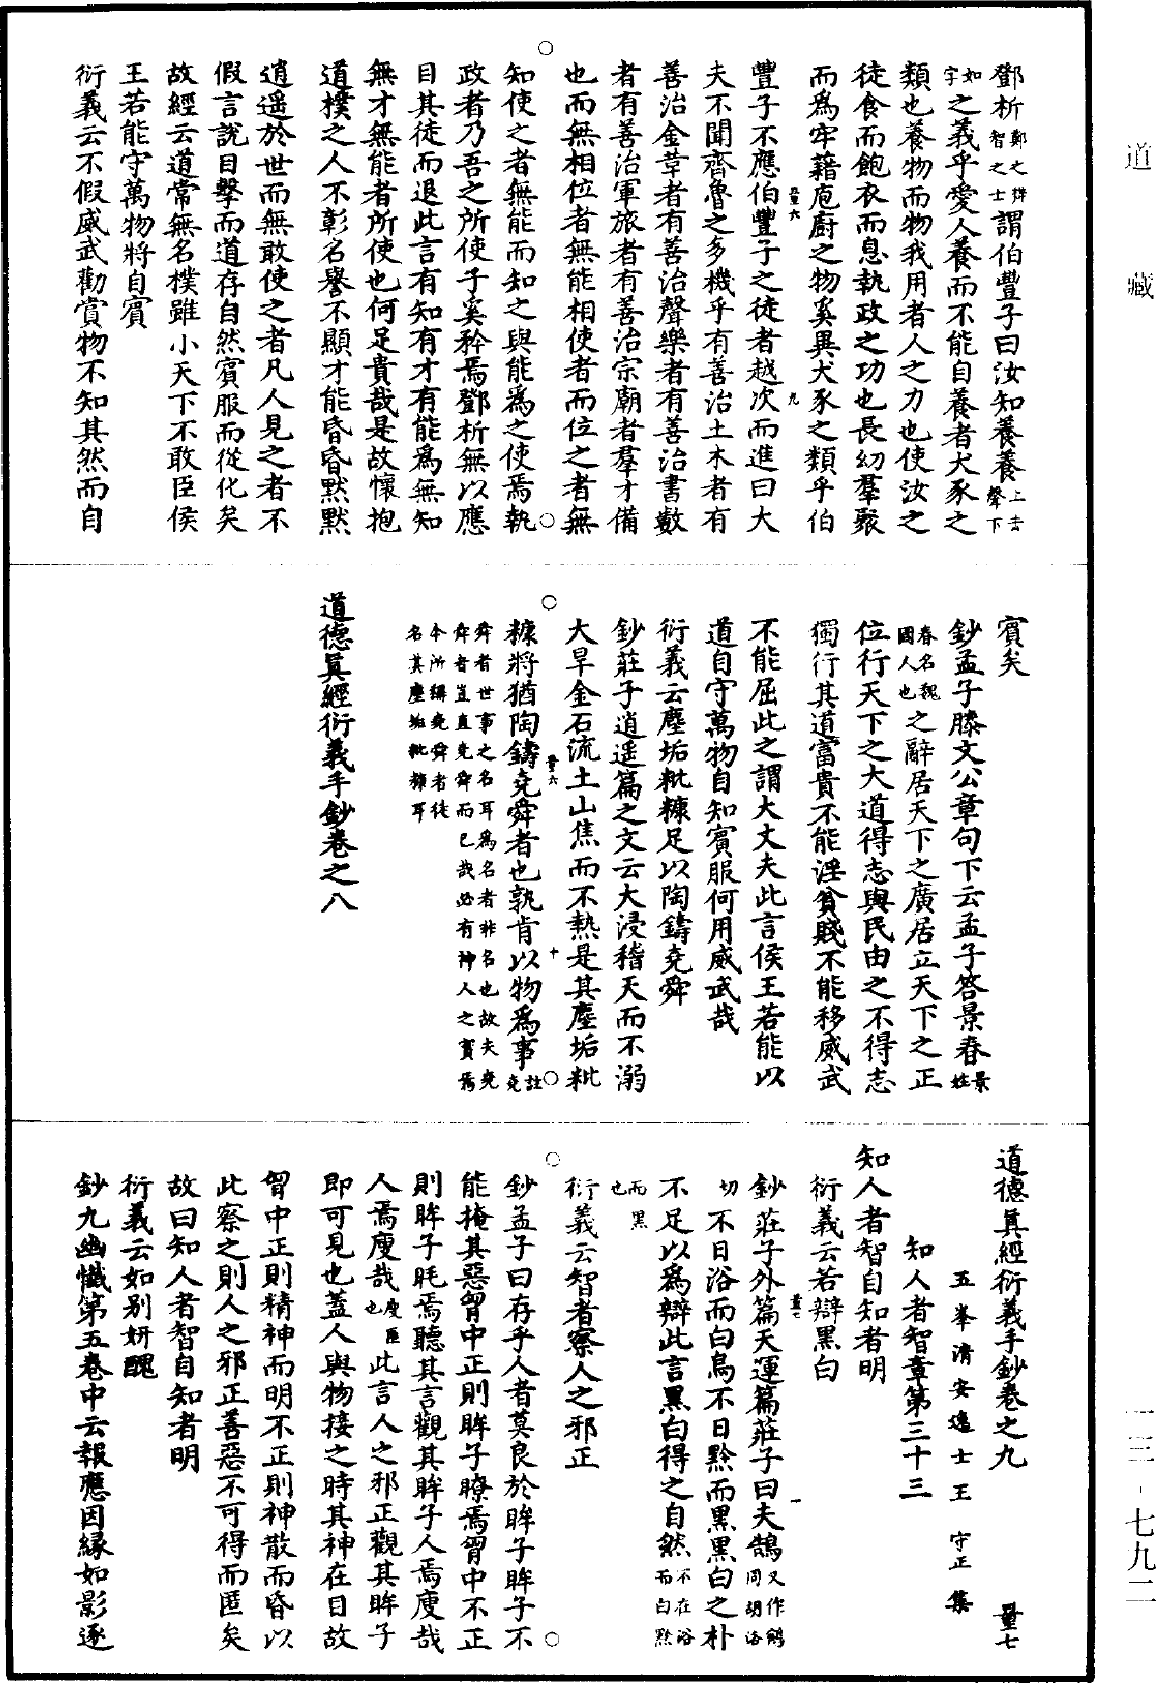 道藏
鄧析鄭之辨智之士謂伯豐子曰汝知養養上去聲下
如字之義乎愛人養而不能自養者犬豕之
類也養物而物我用者人之力也使汝之
徒食而飽衣而息執政之功也長幼羣聚
而爲牢藉庖廚之物奚異犬豕之類乎伯
量六 九
豐子不應伯豐子之徒者越次而進曰大
夫不聞齊魯之多機乎有善治土木者有
善治金革者有善治聲樂者有善治書數
者有善治軍旅者有善治宗廟者羣才備
也而無相位者無能相使者而位之者無
知使之者無能而知之與能爲之使焉執
政者乃吾之所使子奚矜焉鄧析無以應
目其徒而退此言有知有才有能爲無知
無才無能者所使也何足貴哉是故懷抱
道樸之人不彰名譽不顯才能昏昏默默
逍遥於世而無敢使之者凡人見之者不
假言說目擊而道存自然賓服而從化矣
故經云道常無名樸雖小天下不敢臣侯
王若能守萬物將自賓
衍義云不假威武勸賞物不知其然而自
賓矣
鈔孟子滕文公章句下云孟子答景春景姓
春名魏國人也之辭居天下之廣居立天下之正
位行天下之大道得志與民由之不得志
獨行其道富貴不能淫貧賤不能移威武
不能屈此之謂大丈夫此言侯王若能以
道自守萬物自知賓服何用威武哉
衍義云塵垢粃糠足以陶鑄堯舜
鈔莊子逍遥篇之文云大浸稽天而不溺
大旱金石流土山焦而不熱是其塵垢粃
量六 十
糠將猶陶鑄堯舜者也孰肯以物爲事註堯
舜者世事之名耳爲名者非名也故夫堯
舜者豈直堯舜而已哉必有神人之實焉
今所稱堯舜者徒
名其塵垢粃糠耳
道德眞經衍義手鈔卷之八
道德眞經衍義手鈔卷之九 量七
五峯清安逸士王守正集
知人者智章第三十三
知人者智自知者明
衍義云若辯黑白
量七 一
鈔莊子外篇天運篇莊子曰夫鵠又作鶴同胡洛
切不日浴而白烏不日黔而黑黑白之朴
不足以爲辯此言黑白得之自然不在浴而白黔
而黑也
衍義云智者察人之邪正
鈔孟子曰存乎人者莫良於眸子眸子不
能掩其惡胷中正則眸子瞭焉胷中不正
則眸子眊焉聽其言觀其眸子人焉廋哉
人焉廋哉廋匿也此言人之邪正觀其眸子
即可見也蓋人與物接之時其神在目故
胷中正則精神而明不正則神散而昏以
此察之則人之邪正善惡不可得而匿矣
故曰知人者智自知者明
衍義云如别妍醜
鈔九幽懺第五卷中云報應因緣如影逐
一三-七九二